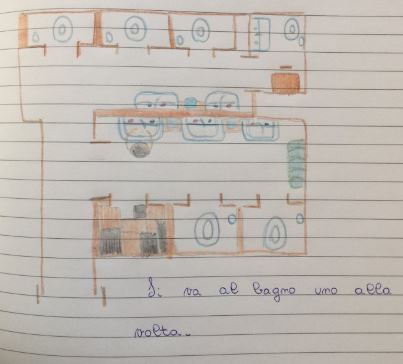 Si va al bagno uno alla
volta.